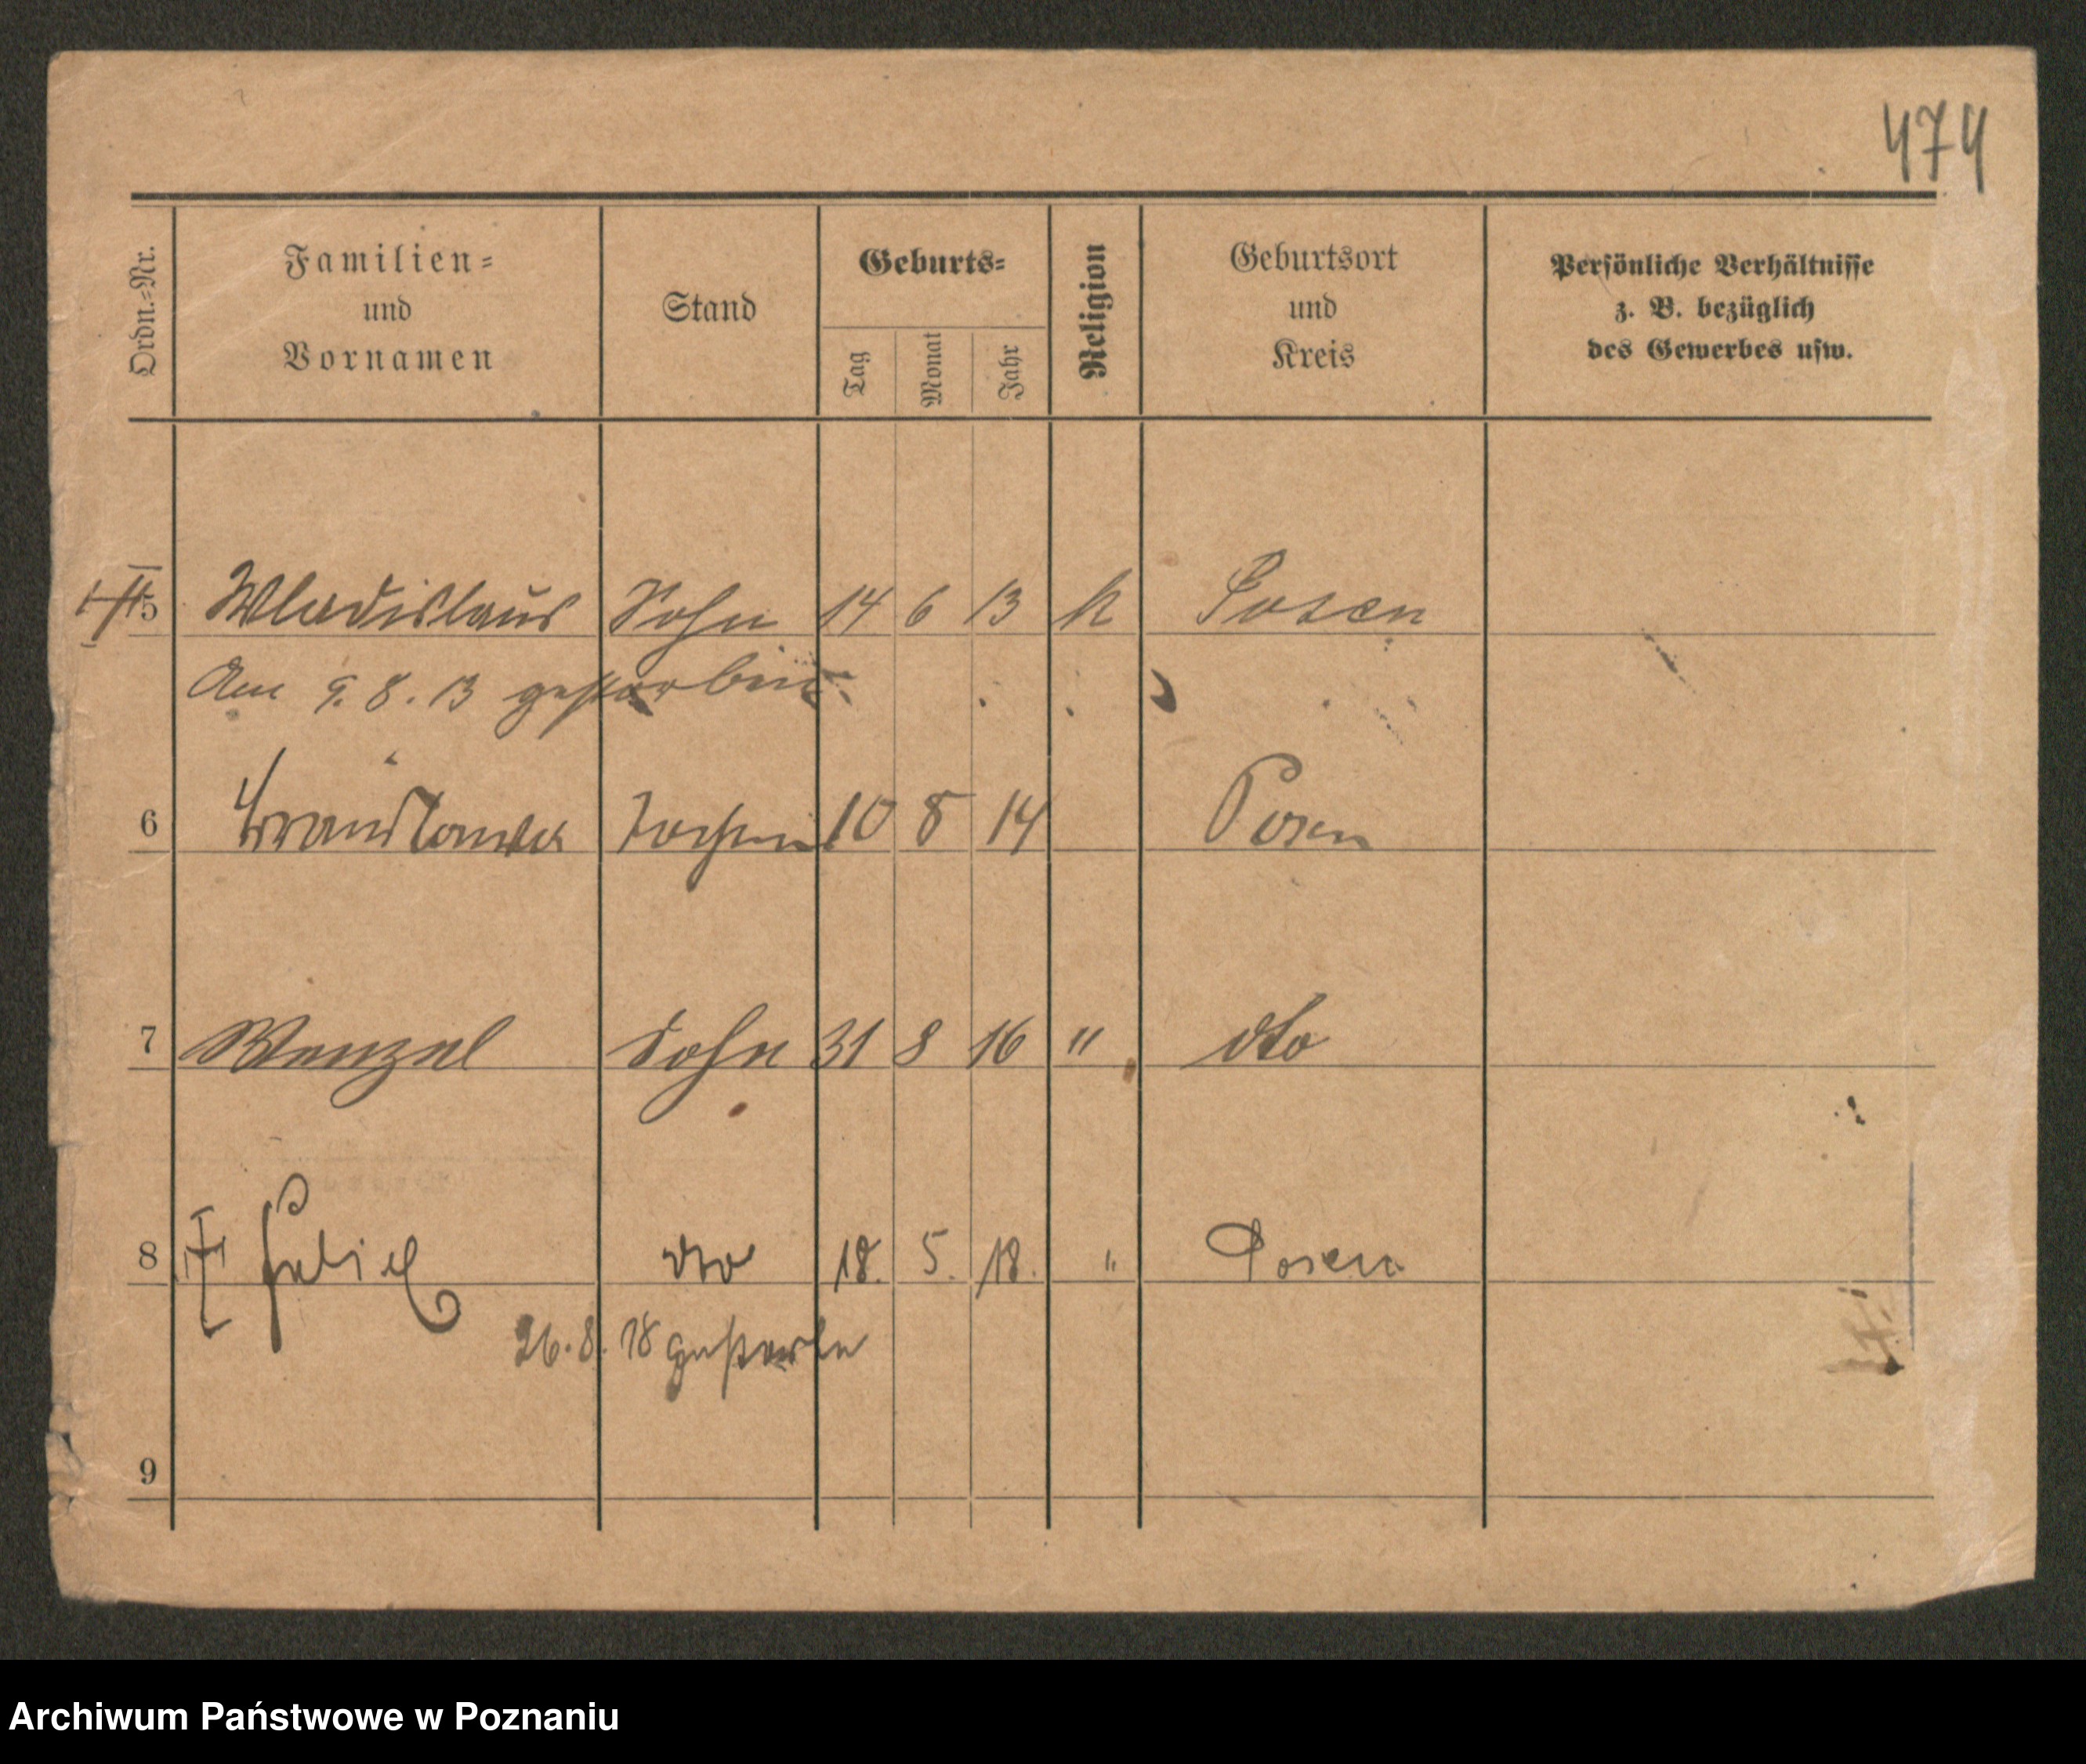 474
Ordn.=Nr.
Familien=
und
Vornamen
Stand
Geburts=
Tag
Monat
Jahr
Religion
Geburtsort
und
Kreis
Persönliche Verhältnisse
z. B. bezüglich
des Gewerbes usw.
5 Wladislaus Sohn 14 6 13 k Posen
Am 9. 8. 13 gestorben
6 10 8 14 Posen
7 Wenzel Sohn 31 8 16 " dto
8 dto 18. 5. 18. " Posen
26. 8. 18 gestorben
9
Archiwum Państwowe w Poznaniu